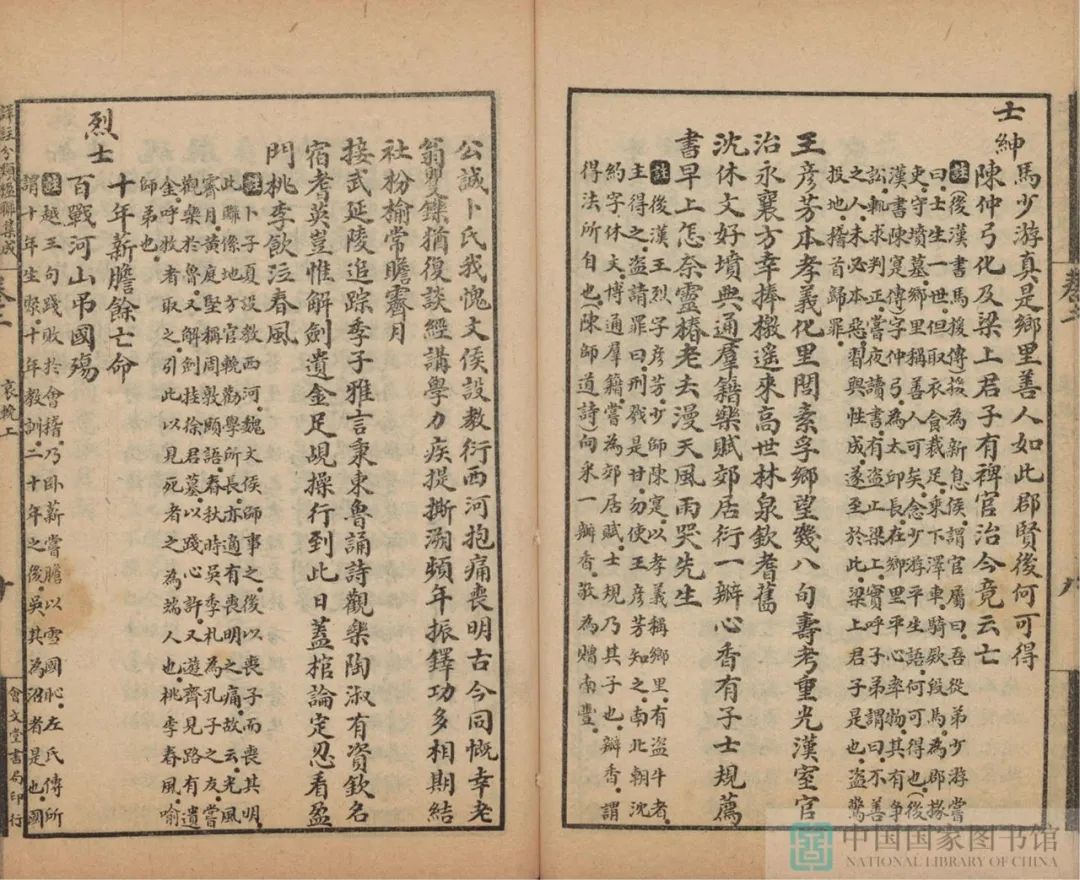 士紳
馬少游真是鄉里善人如此郡賢後何可得
陳仲弓化及梁上君子有裨官治今竟云亡
註(後漢書馬援傳)援為新息侯謂官屬曰吾從弟少游嘗
曰士生一世但取衣食裁足乘下澤車騎欵段馬為郡掾
吏守墳墓鄉里稱善人可矣念少游平生語何可得也(後
漢書陳寔傳)字仲弓為太邱長在鄉里平心率物其有爭
訟輒求判正嘗夜讀書有盜止梁上寔呼子弟謂曰不善
之人未必本惡習與性成遂至於此梁上君子是也盜驚
投地稽首歸罪
王彥芳本孝義化里閭素孚鄉望幾八句壽考重光漢室官
治永襄方幸捧檄遥來高世林泉欽耆舊
沈休文好墳典通羣籍樂賦郊居衍一瓣心香有子士規薦
書早上怎奈靈椿老去漫天風雨哭先生
註後漢王烈子彥芳少師陳寔以孝義稱鄉里有盜牛者
主得之盜請罪曰刑戮是甘勿使王彥芳知之南北朝沈
約字休文博通羣籍嘗為郊居賦士規乃其子也瓣香謂
得法所自也(陳師道詩)向來一瓣香敬為贈南豐
卷二
八
公誠卜氏我愧文侯設教衍西河抱痛喪明古今同慨幸老
翁矍鑠猶復談經講學力疾提撕溯頻年振鐸功多相期結
社枌榆常瞻霽月
接武延陵追踪季子雅言秉東魯誦詩觀樂陶淑有資欽名
宿考英豈惟解劍遺金足覘操行到此日蓋棺論定忍看盈
門桃李飲泣春風
註卜子夏設教西河魏文侯師事之後以喪子而喪其明
此聯係地方官輓勸學所長亦適有喪明之痛故云光風
霽月黃庭堅稱周敦頤語春秋時吳季札為孔子之友嘗
觀樂於魯又解劍挂徐君墓以踐心許又遊齊見路有遺
金呼牧者取之引此以見死者之為端人也桃李春風喻
師弟也
烈士
十年薪膽餘亡命
百戰河山弔國殤
註越王句踐敗於會稽乃臥薪嘗膽以雪國恥左氏傳所
謂十年生聚十年教訓二十年之後吳其為沼者是也國
詳註分類楹聯集成
卷二
哀輓上
會文堂書局印行
中国国家图书馆
NATIONAL LIBRARY OF CHINA